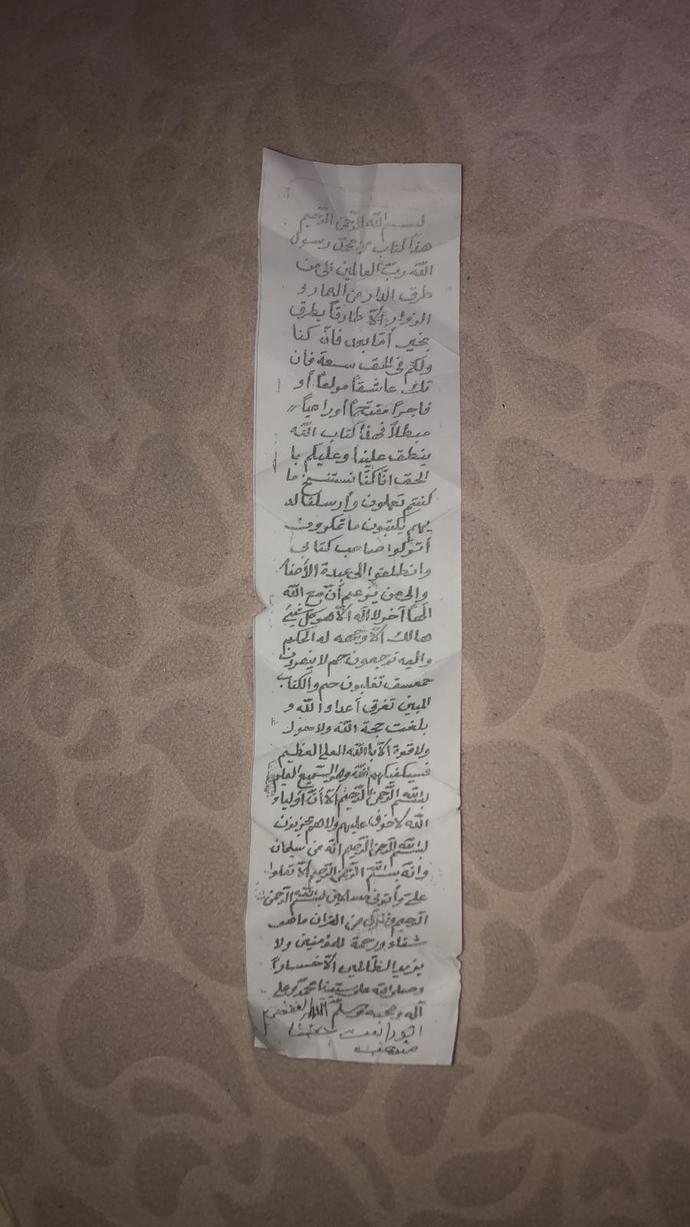 بسم الله الرحمن الرحيم
هذا كتاب من محمد رسول
الله رب العالمين الى من
طرق الدار من العمار و
الزوار الا طارقاً يطرق
بخير أما بعد فان لنا
ولكم فى الحق سعة فان
تك عاشقاً مولعاً أو
فاجراً مقتحماً أو راعياً
مبطلاً فهذا كتاب الله
ينطق علينا وعليكم با
لحق انا كنا نستنسخ ما
كنتم تعملون وأرسلنا لد
يهم يكتبون ما تمكرون
أتركوا صاحب كتابى
وانطلقوا الى عبدة الأصنا
والى من يزعم أن مع الله
الهاً آخر لا اله الا هو كل شيئ
هالك الا وجهه له الحكم
واليه ترجعون حم لا ينصرون
حمعسق تغلبون حم والكتاب
المبين تفرق أعداء الله و
بلغت حجة الله ولا حول
ولا قوة الا بالله العلى العظيم
فسيكفيكهم الله وهو السميع العليم
بسم الله الرحمن الرحيم الا أن أولياء
الله لا خوف عليهم ولا هم يحزنون
بسم الله الرحمن الرحيم انه من سليمان
وانه بسم الله الرحمن الرحيم الا تعلوا
على وأتونى مسلمين بسم الله الرحمن
الرحيم وننزل من القران ما هو
شفاء ورحمة للمؤمنين ولا
يزيد الظالمين الا خساراً
وصلى الله على سيدنا محمد وعلى
آله وصحبه وسلم